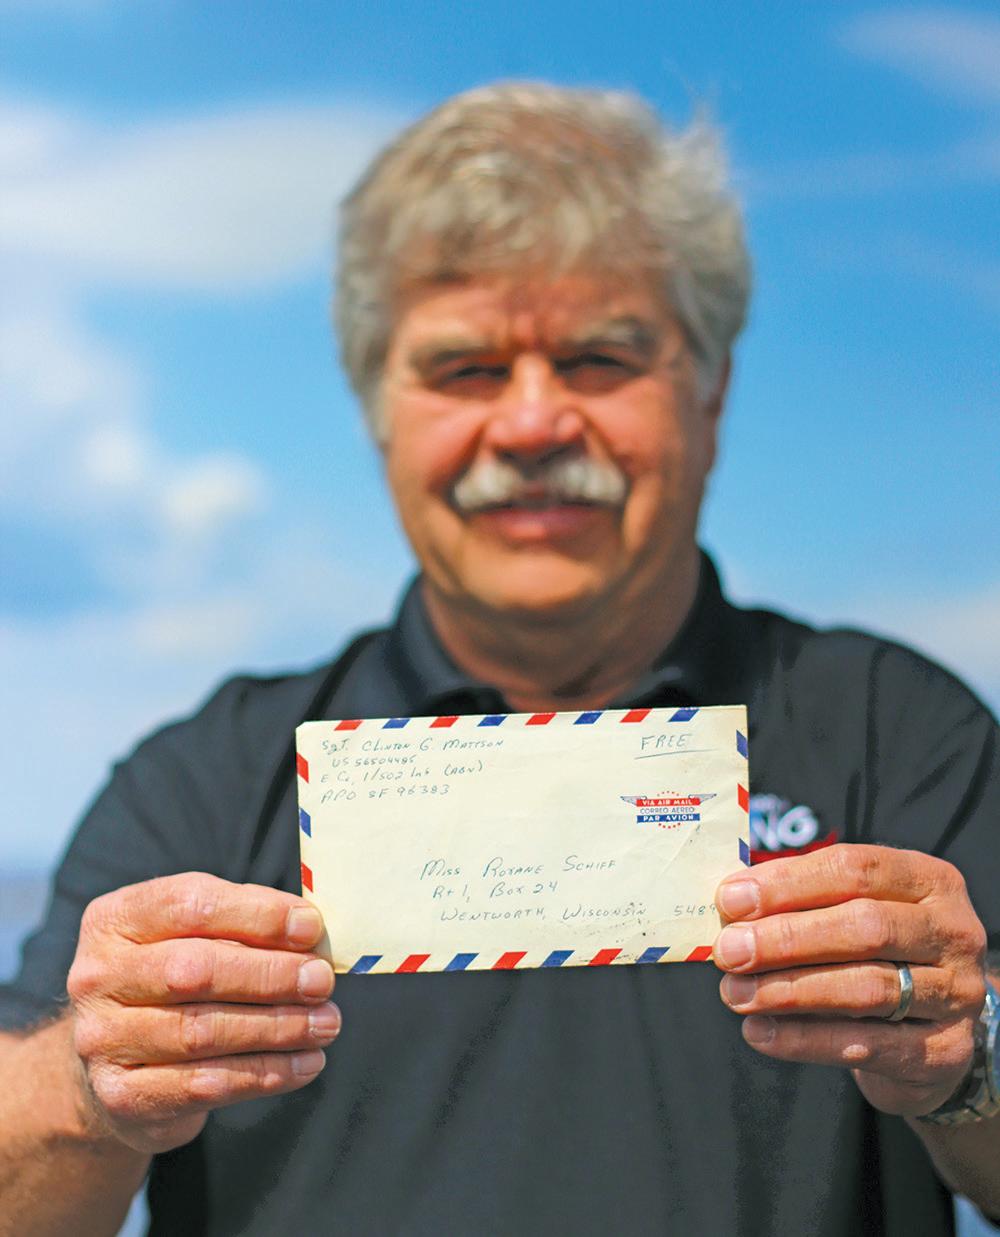 Sgt. Clinton G. Mattson
US 56504485
E Co, 1/502 Inf (ABN)
APO SF 96383
FREE
VIA AIR MAIL
CORREO AEREO
PAR AVION
Miss Roxane Schiff
Rt 1, Box 24
Wentworth, Wisconsin 548